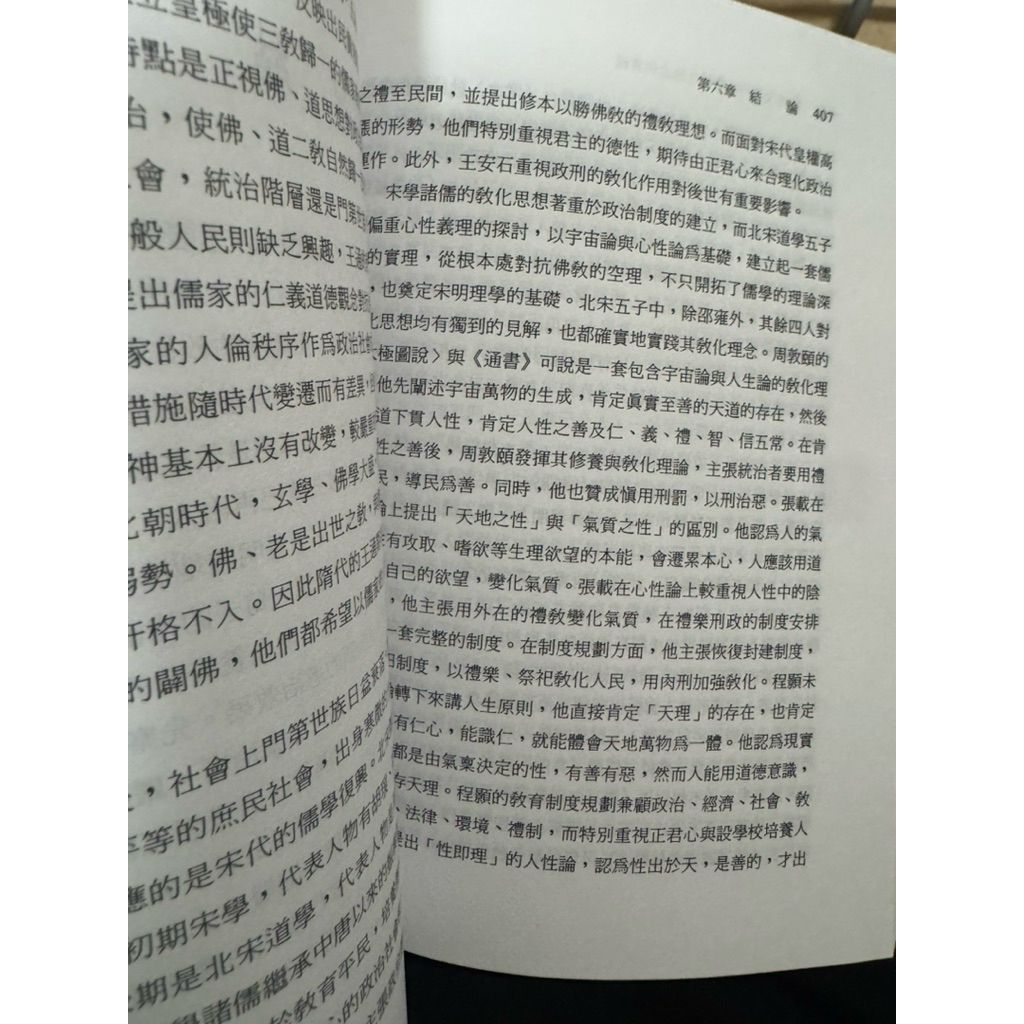 立皇極使三教歸一的儒家
特點是正視佛、道思想對
治，使佛、道二教自然歸一
會，統治階層還是門第世
般人民則缺乏興趣，王通
是出儒家的仁義道德觀念對
家的人倫秩序作爲政治社會
措施隨時代變遷而有差異，
神基本上沒有改變，較嚴重
北朝時代，玄學、佛學大盛
弱勢。佛、老是出世之教，
扞格不入。因此隋代的王通
的闢佛，他們都希望以儒家
，社會上門第世族日益衰
等的庶民社會，出身寒微的
應的是宋代的儒學復興。北宋
初期宋學，代表人物有胡瑗、
期是北宋道學，代表人物
學諸儒繼承中唐以來的
於教育平民，培
心的政治社會
第六章 結 論 407
之禮至民間，並提出修本以勝佛教的禮教理想。而面對宋代皇權高
張的形勢，他們特別重視君主的德性，期待由正君心來合理化政治
運作。此外，王安石重視政刑的教化作用對後世有重要影響。
宋學諸儒的教化思想著重於政治制度的建立，而北宋道學五子
偏重心性義理的探討，以宇宙論與心性論爲基礎，建立起一套儒
的實理，從根本處對抗佛教的空理，不只開拓了儒學的理論深
，也奠定宋明理學的基礎。北宋五子中，除邵雍外，其餘四人對
化思想均有獨到的見解，也都確實地實踐其教化理念。周敦頤的
太極圖說〉與《通書》可說是一套包含宇宙論與人生論的教化理
他先闡述宇宙萬物的生成，肯定眞實至善的天道的存在，然後
道下貫人性，肯定人性之善及仁、義、禮、智、信五常。在肯
性之善後，周敦頤發揮其修養與教化理論，主張統治者要用禮
民，導民爲善。同時，他也贊成愼用刑罰，以刑治惡。張載在
論上提出「天地之性」與「氣質之性」的區別。他認爲人的氣
有攻取、嗜欲等生理欲望的本能，會遷累本心，人應該用道
自己的欲望，變化氣質。張載在心性論上較重視人性中的陰
，他主張用外在的禮教變化氣質，在禮樂刑政的制度安排
一套完整的制度。在制度規劃方面，他主張恢復封建制度，
田制度，以禮樂、祭祀教化人民，用肉刑加強教化。程顥未
論轉下來講人生原則，他直接肯定「天理」的存在，也肯定
有仁心，能識仁，就能體會天地萬物爲一體。他認爲現實
都是由氣稟決定的性，有善有惡，然而人能用道德意識，
存天理。程顥的教育制度規劃兼顧政治、經濟、社會、教
、法律、環境、禮制，而特別重視正君心與設學校培養人
提出「性即理」的人性論，認爲性出於天，是善的，才出